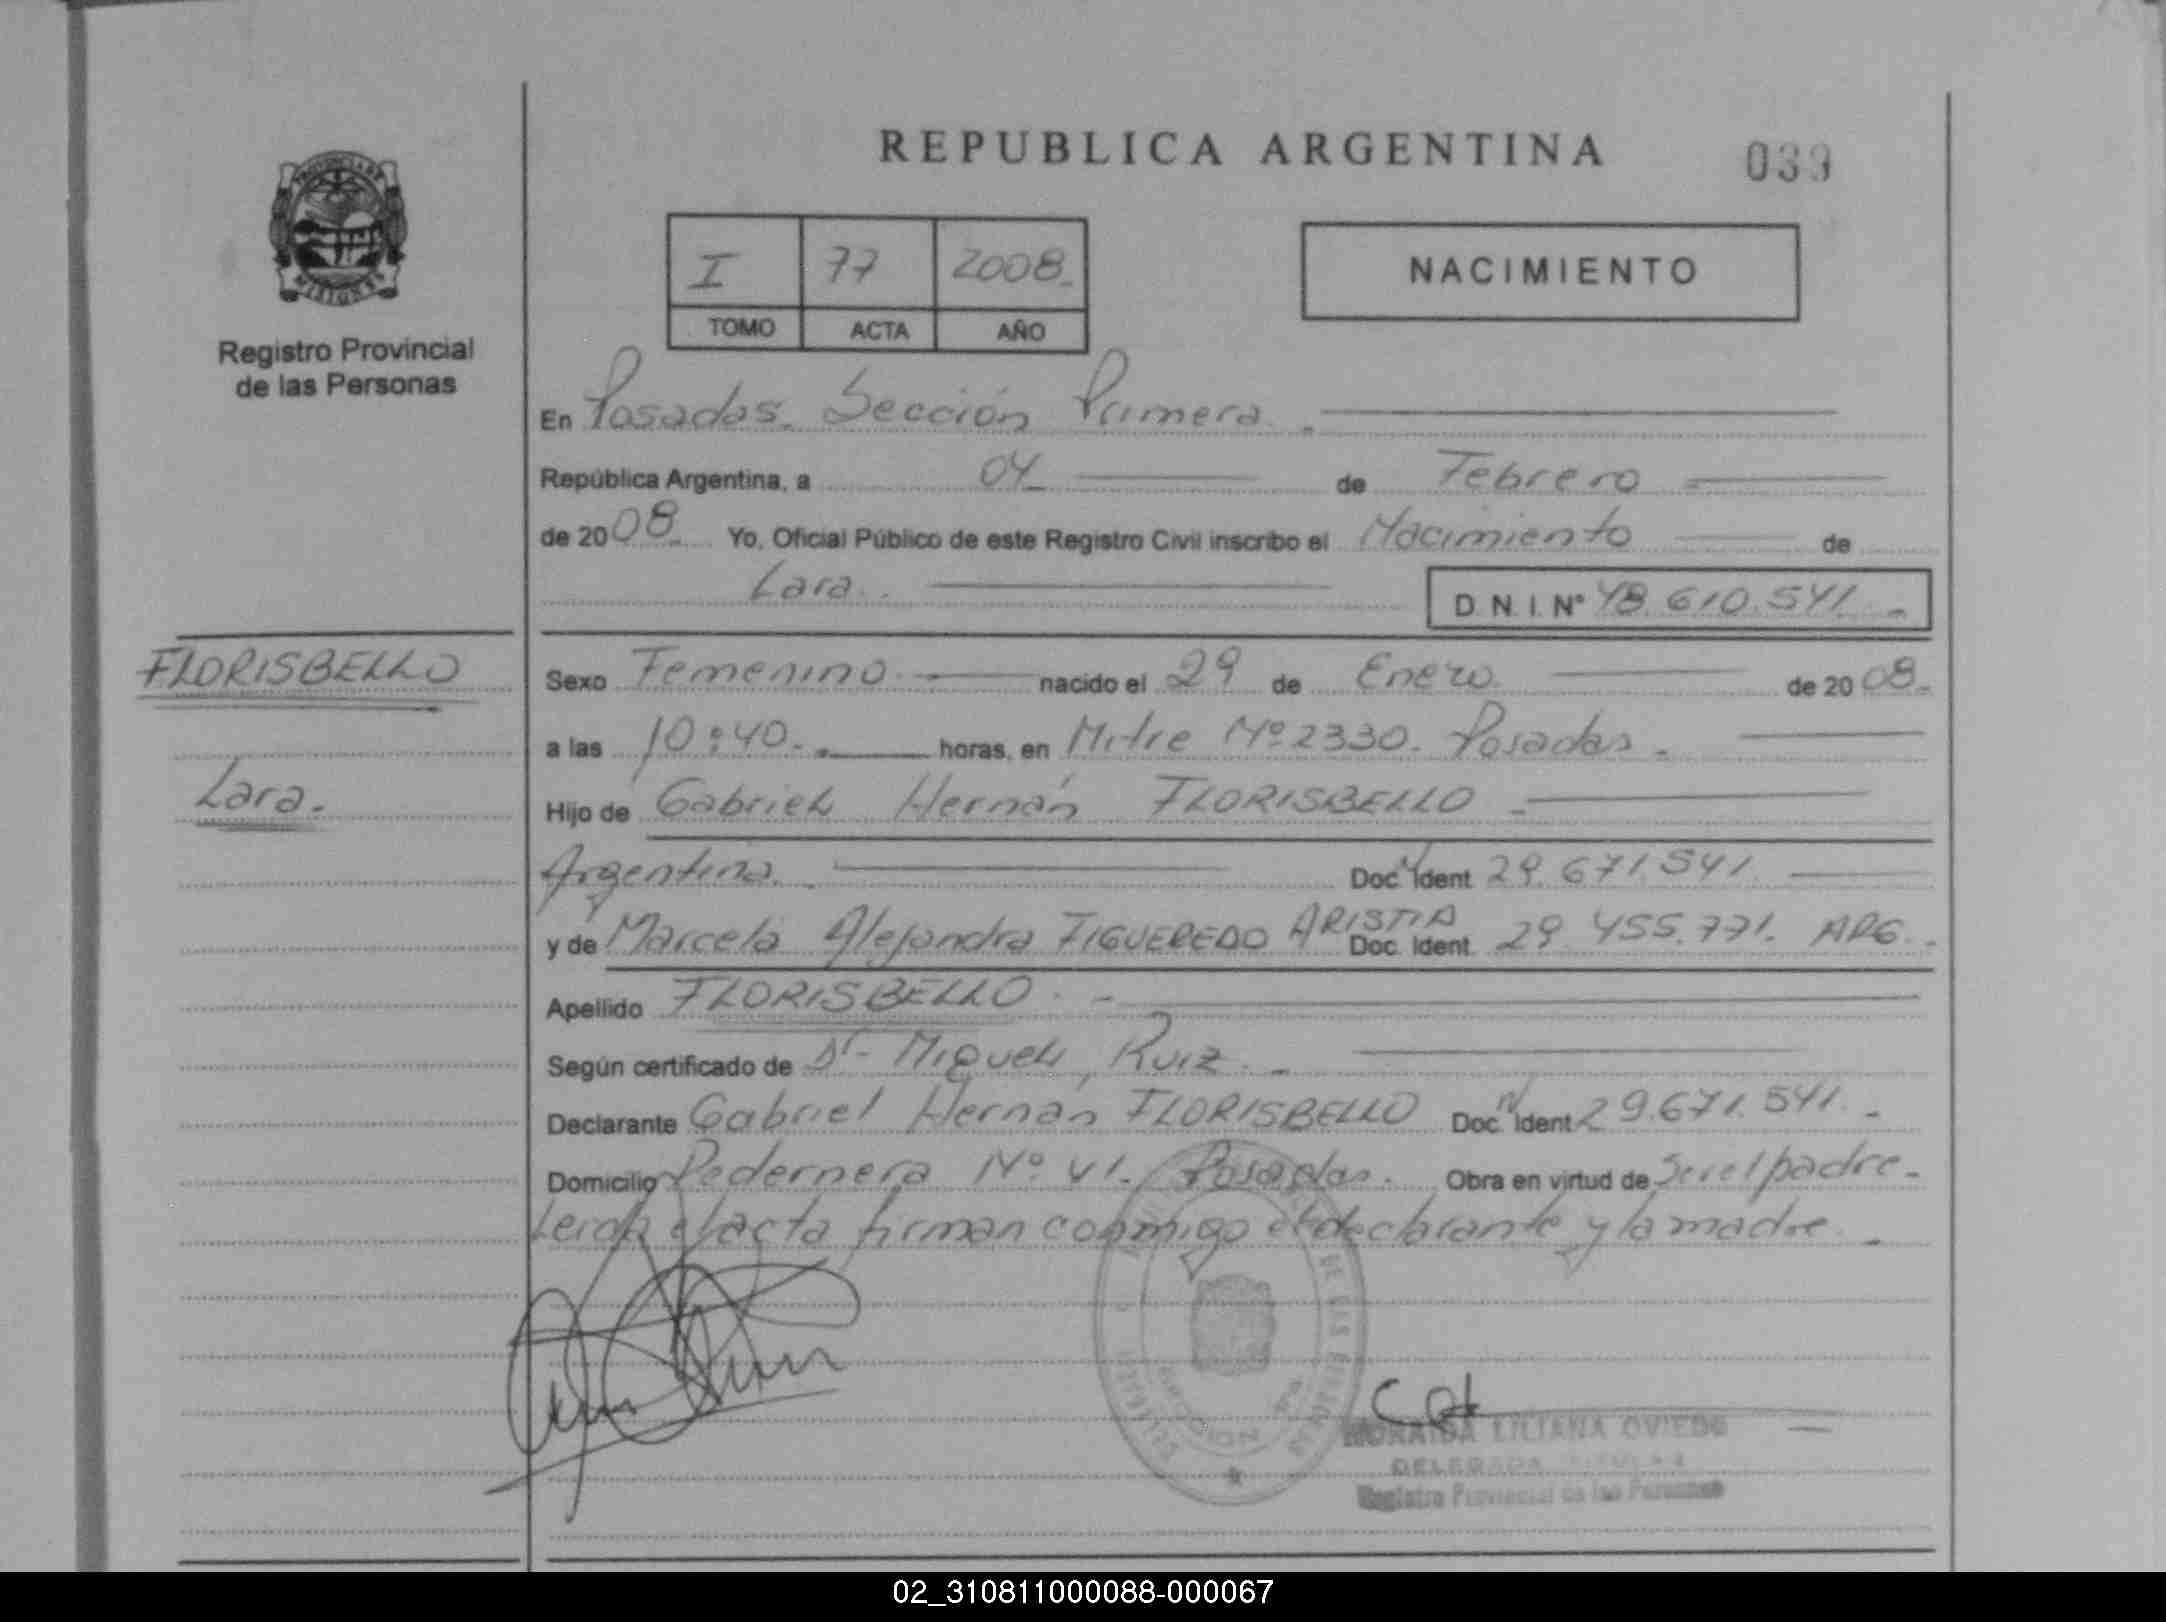 REPUBLICA ARGENTINA
039
PROVINCIA DE
MISIONES
Registro Provincial
de las Personas
I 77 2008.
TOMO ACTA AÑO
NACIMIENTO
En Posadas. Sección Primera.
República Argentina, a 04 de Febrero
de 2008. Yo, Oficial Público de este Registro Civil inscribo el Nacimiento de
Lara. D. N. I. Nº 48.610.541.-
FLORISBELLO
Lara.
Sexo Femenino. nacido el 29 de Enero. de 2008.
a las 10:40. horas, en Mitre Nº 2330. Posadas.
Hijo de Gabriel Hernán FLORISBELLO
Argentina. Doc. Ident 29.671.541.
y de Marcela Alejandra FIGUEREDO ARISTIA Doc. Ident. 29.455.771. ARG.
Apellido FLORISBELLO.
Según certificado de Dr. Miguel Ruiz.
Declarante Gabriel Hernán FLORISBELLO Doc. Ident 29.671.541.
Domicilio Pedernera Nº 41. Posadas. Obra en virtud de Ser el padre.
Leída el acta firman conmigo el declarante y la madre.
LILIANA OVIEDO
DELEGADA
Registro Provincial de las Personas
02_310811000088-000067